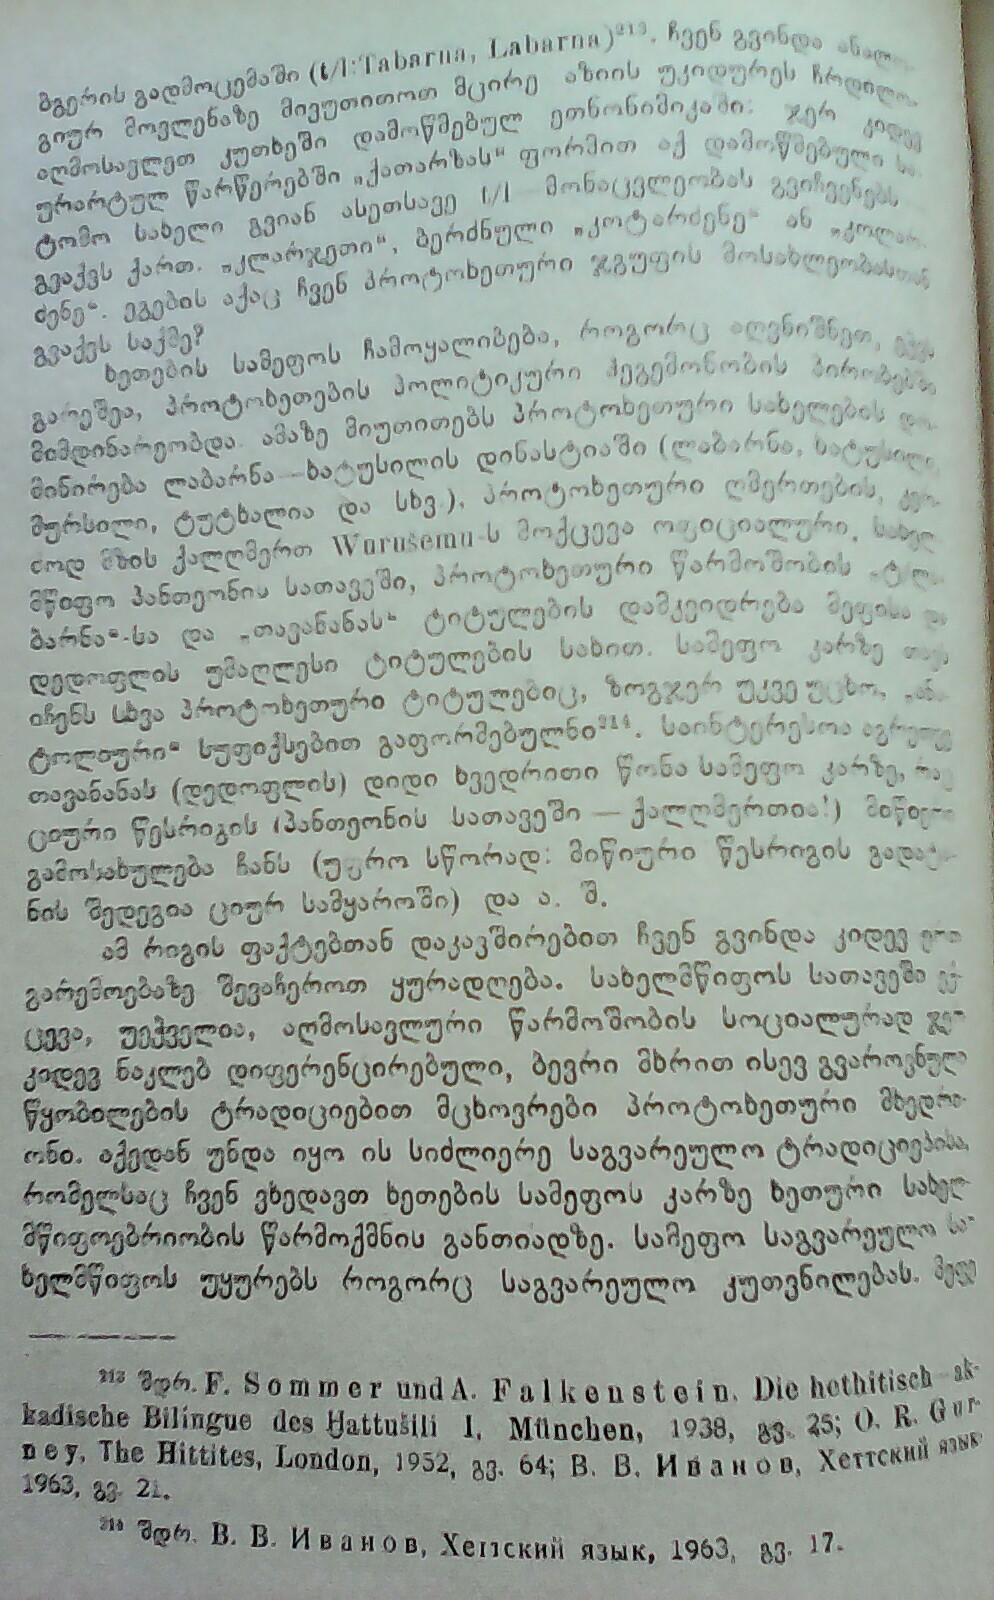 ბგერის გადმოცემაში (t/l:Tabarna, Labarna)²¹³. ჩვენ გვინდა
გიურ მოვლენაზე მივუთითოთ მცირე აზიის უკიდურეს ჩრდილო-
აღმოსავლეთ კუთხეში დამოწმებულ ეთნონიმიკაში: ჯერ კიდევ
ურარტულ წარწერებში „ქათარზას“ ფორმით აქ დამოწმებული
ტომო სახელი გვიან ასეთსავე t/l მონაცვლეობას გვიჩვენებს
გვაქვს ქართ. „კლარჯეთი“, ბერძნული „კოტარძენე“ ან „კოლარ-
ძენე“. ეგების აქაც ჩვენ პროტოხეთური ჯგუფის მოსახლეობასთან
გვაქვს საქმე?
ხეთების სამეფოს ჩამოყალიბება, როგორც აღვნიშნეთ,
გარეშეა, პროტოხეთების პოლიტიკური ჰეგემონობის პირობებში
მიმდინარეობდა. ამაზე მიუთითებს პროტოხეთური სახელების დო-
მინირება ლაბარნა—ხატუსილის დინასტიაში (ლაბარნა, ხატუსილი,
მურსილი, ტუტხალია და სხვ.), პროტოხეთური ღმერთების, კერ-
ძოდ მზის ქალღმერთ Wurušemu-ს მოქცევა ოფიციალური, სახელ-
მწიფო პანთეონის სათავეში, პროტოხეთური წარმოშობის
ბარნა“-სა და „თავანანას“ ტიტულების დამკვიდრება მეფისა და
დედოფლის უმაღლესი ტიტულების სახით. სამეფო კარზე თავს
იჩენს სხვა პროტოხეთური ტიტულებიც, ზოგჯერ უკვე უცხო, „ანა-
ტოლიური“ სუფიქსებით გაფორმებულნი²¹⁴. საინტერესოა აგრეთვე
თავანანას (დედოფლის) დიდი ხვედრითი წონა სამეფო კარზე, რაც
ციური წესრიგის (პანთეონის სათავეში — ქალღმერთია!) მიწიერი
გამოსახულება ჩანს (უფრო სწორად: მიწიური წესრიგის
ნის შედეგია ციურ სამყაროში) და ა. შ.
ამ რიგის ფაქტებთან დაკავშირებით ჩვენ გვინდა კიდევ ერთ
გარემოებაზე შევაჩეროთ ყურადღება. სახელმწიფოს სათავეში ექ-
ცევა, უეჭველია, აღმოსავლური წარმოშობის სოციალურად ჯერ
კიდევ ნაკლებ დიფერენცირებული, ბევრი მხრით ისევ გვაროვნული
წყობილების ტრადიციებით მცხოვრები პროტოხეთური მხედრი-
ონი. აქედან უნდა იყო ის სიძლიერე საგვარეულო ტრადიციებისა,
რომელსაც ჩვენ ვხედავთ ხეთების სამეფოს კარზე ხეთური სახელ-
მწიფოებრიობის წარმოქმნის განთიადზე. სამეფო საგვარეულო სა-
ხელმწიფოს უყურებს როგორც საგვარეულო კუთვნილებას. მეფე
²¹³ შდრ. F. Sommer und A. Falkenstein, Die hethitisch-ak-
kadische Bilingue des Ḫattušili I, München, 1938, გვ. 25; O. R. Gur-
ney, The Hittites, London, 1952, გვ. 64; В. В. Иванов, Хеттский язык,
1963, გვ. 21.
²¹⁴ შდრ. В. В. Иванов, Хеттский язык, 1963, გვ. 17.